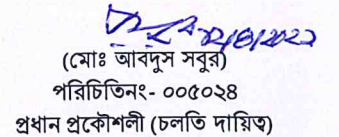 ০২/৪/২০২৩
(মোঃ আবদুস সবুর)
পরিচিতিনং- ০০৫০২৪
প্রধান প্রকৌশলী (চলতি দায়িত্ব)